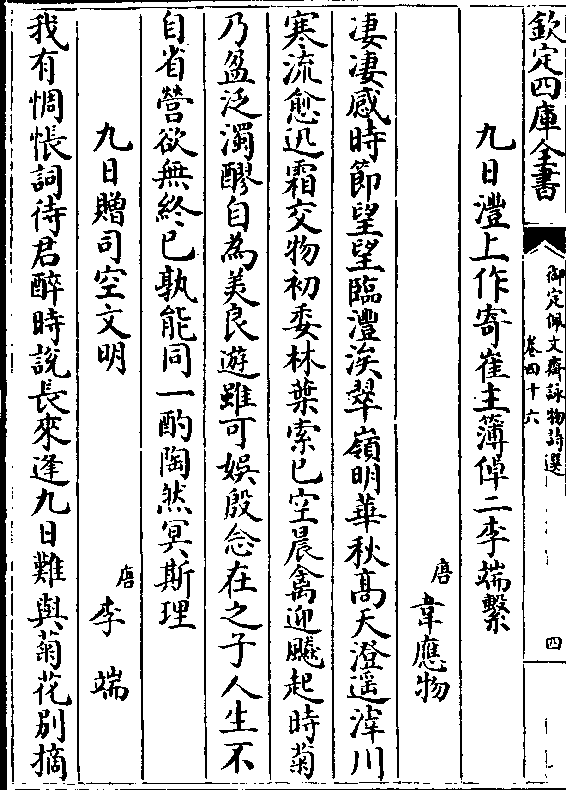 欽定四庫全書
御定佩文齋詠物詩選
卷四十六
四
九日灃上作寄崔主簿倬二李端繫
唐
韋應物
凄凄感時節望望臨灃涘翠嶺明華秋髙天澄遥滓川
寒流愈迅霜交物初委林葉索已空晨禽迎飈起時菊
乃盈泛濁醪自為美良遊雖可娱殷念在之子人生不
自省營欲無終已孰能同一酌陶然冥斯理
九日贈司空文明
唐
李端
我有惆悵詞待君醉時說長來逢九日難與菊花别摘